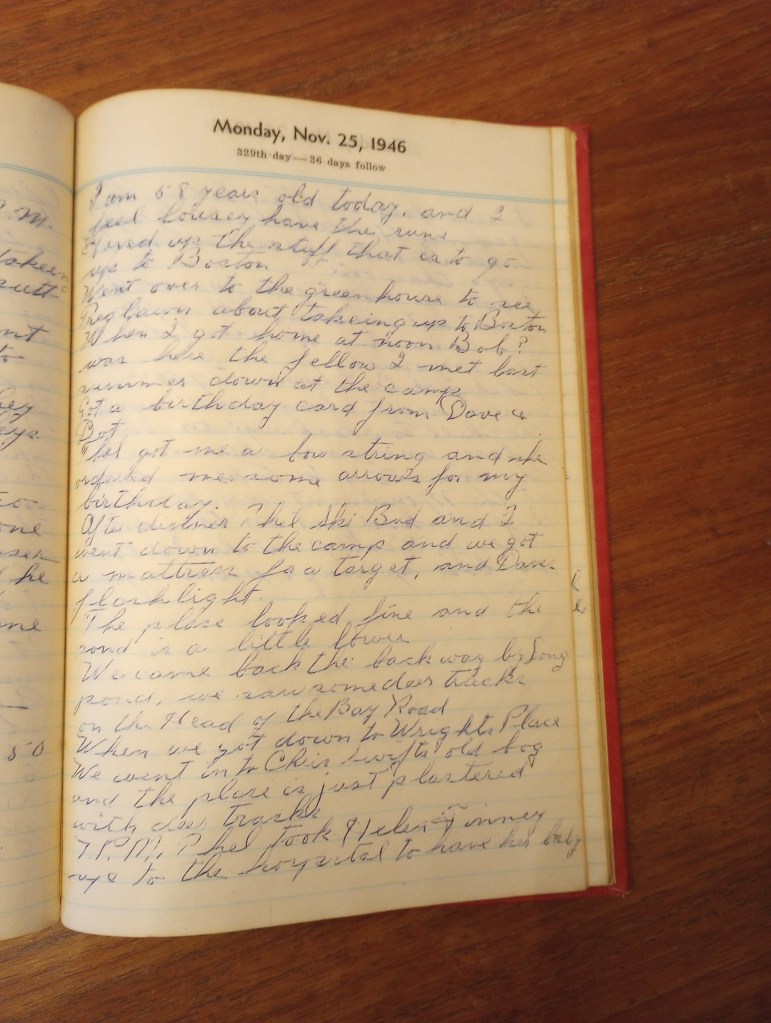 Monday, Nov. 25, 1946
329th day — 36 days follow
I am 58 years old today, and I
feel lousey have the runs
up the stuff that is to go
up to Boston
Went over to the green house to see
about takeing up to Boston
When I got home at noon Bob?
was here the fellow I met last
summer down at the camp
Got a birthday card from Dave &
Bot
Phel got me a bow string and she
ordered me some arrows for my
birthday.
After dinner Phel Ski Bud and I
went down to the camp and we got
a mattress for a target, and Daves
flashlight.
The place looked fine and the
pond is a little lower
We came back the back way by Long
pond, we saw some deer tracks
on the Head of the Bay Road
When we got down to Wrights Place
We went in to Chris Swifts old bog
and the place is just plastered
with deer tracks
7.P.M. Phel took Helen Finney
up to the hospital to have her baby
P.M.
nt
to
ey
one
he
me
50